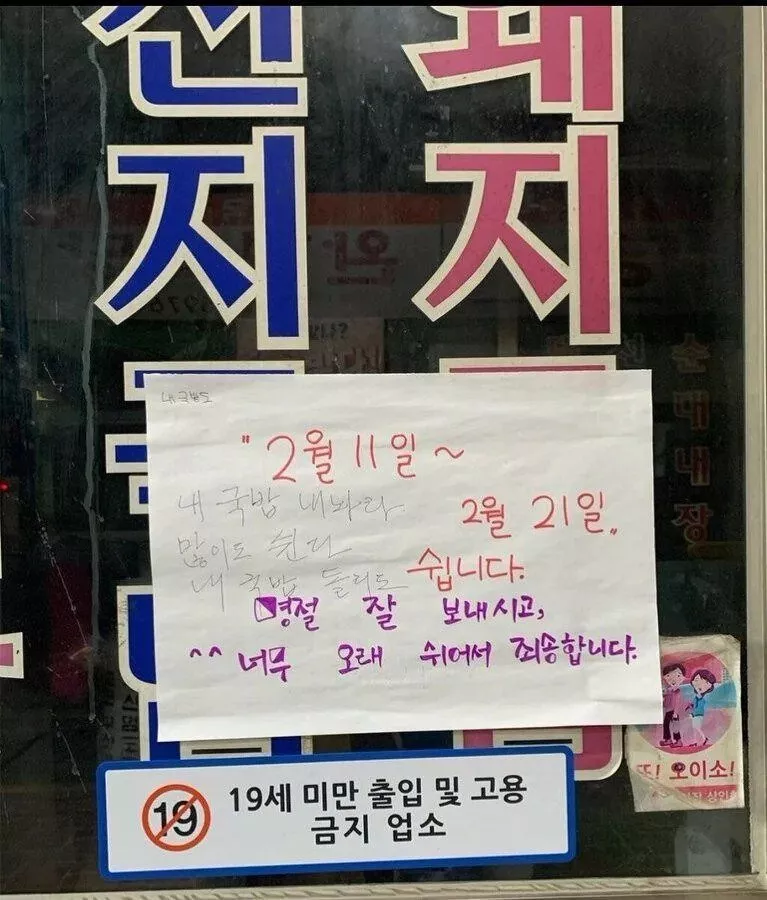 선 돼
지 지
내 국밥도
" 2월 11일 ~
2월 21일 "
쉽니다.
내 국밥 내놔라
많이도 쉰다
내 국밥 돌려도
명절 잘 보내시고,
^^ 너무 오래 쉬어서 죄송합니다.
순대내장
또! 오이소!
19 19세 미만 출입 및 고용
금지 업소